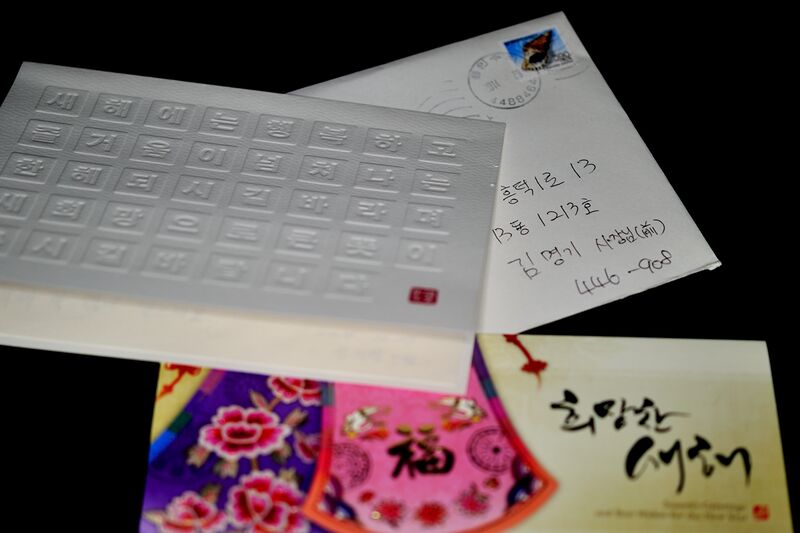 새해에는행복하고
즐거움이넘쳐나는
한해되시길바라며
새희망으로모든뜻이
시길바랍니다
흥덕1로 13
13동 1213호
김명기 사장님(前)
446-908
福
희망찬
새해